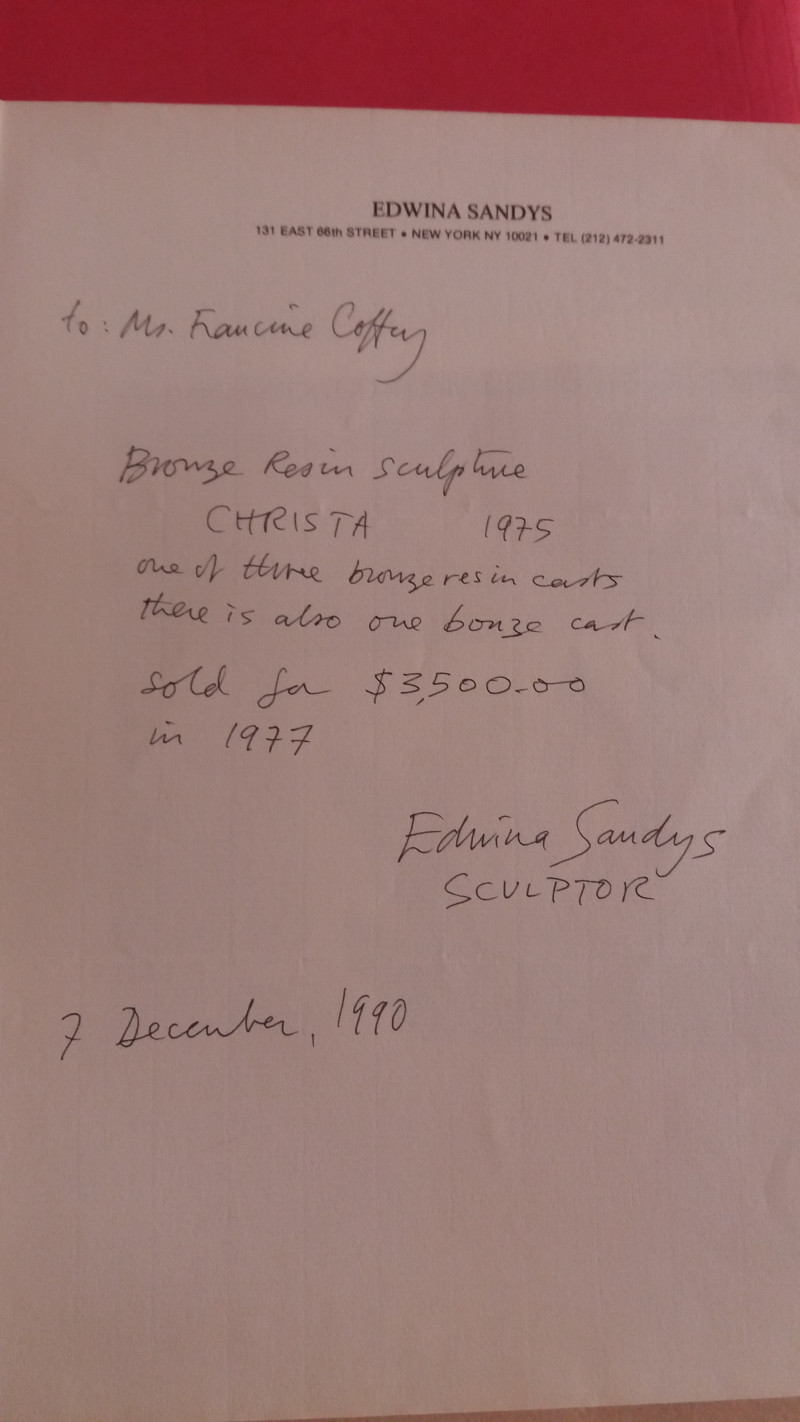 EDWINA SANDYS
131 EAST 66th STREET • NEW YORK NY 10021 • TEL (212) 472-2311
to: Ms. Francine Coffey
Bronze Resin sculpture
CHRISTA 1975
one of three bronze resin casts
there is also one bonze cast.
sold for $3,500.00
in 1977
Edwina Sandys
SCULPTOR
7 December, 1990